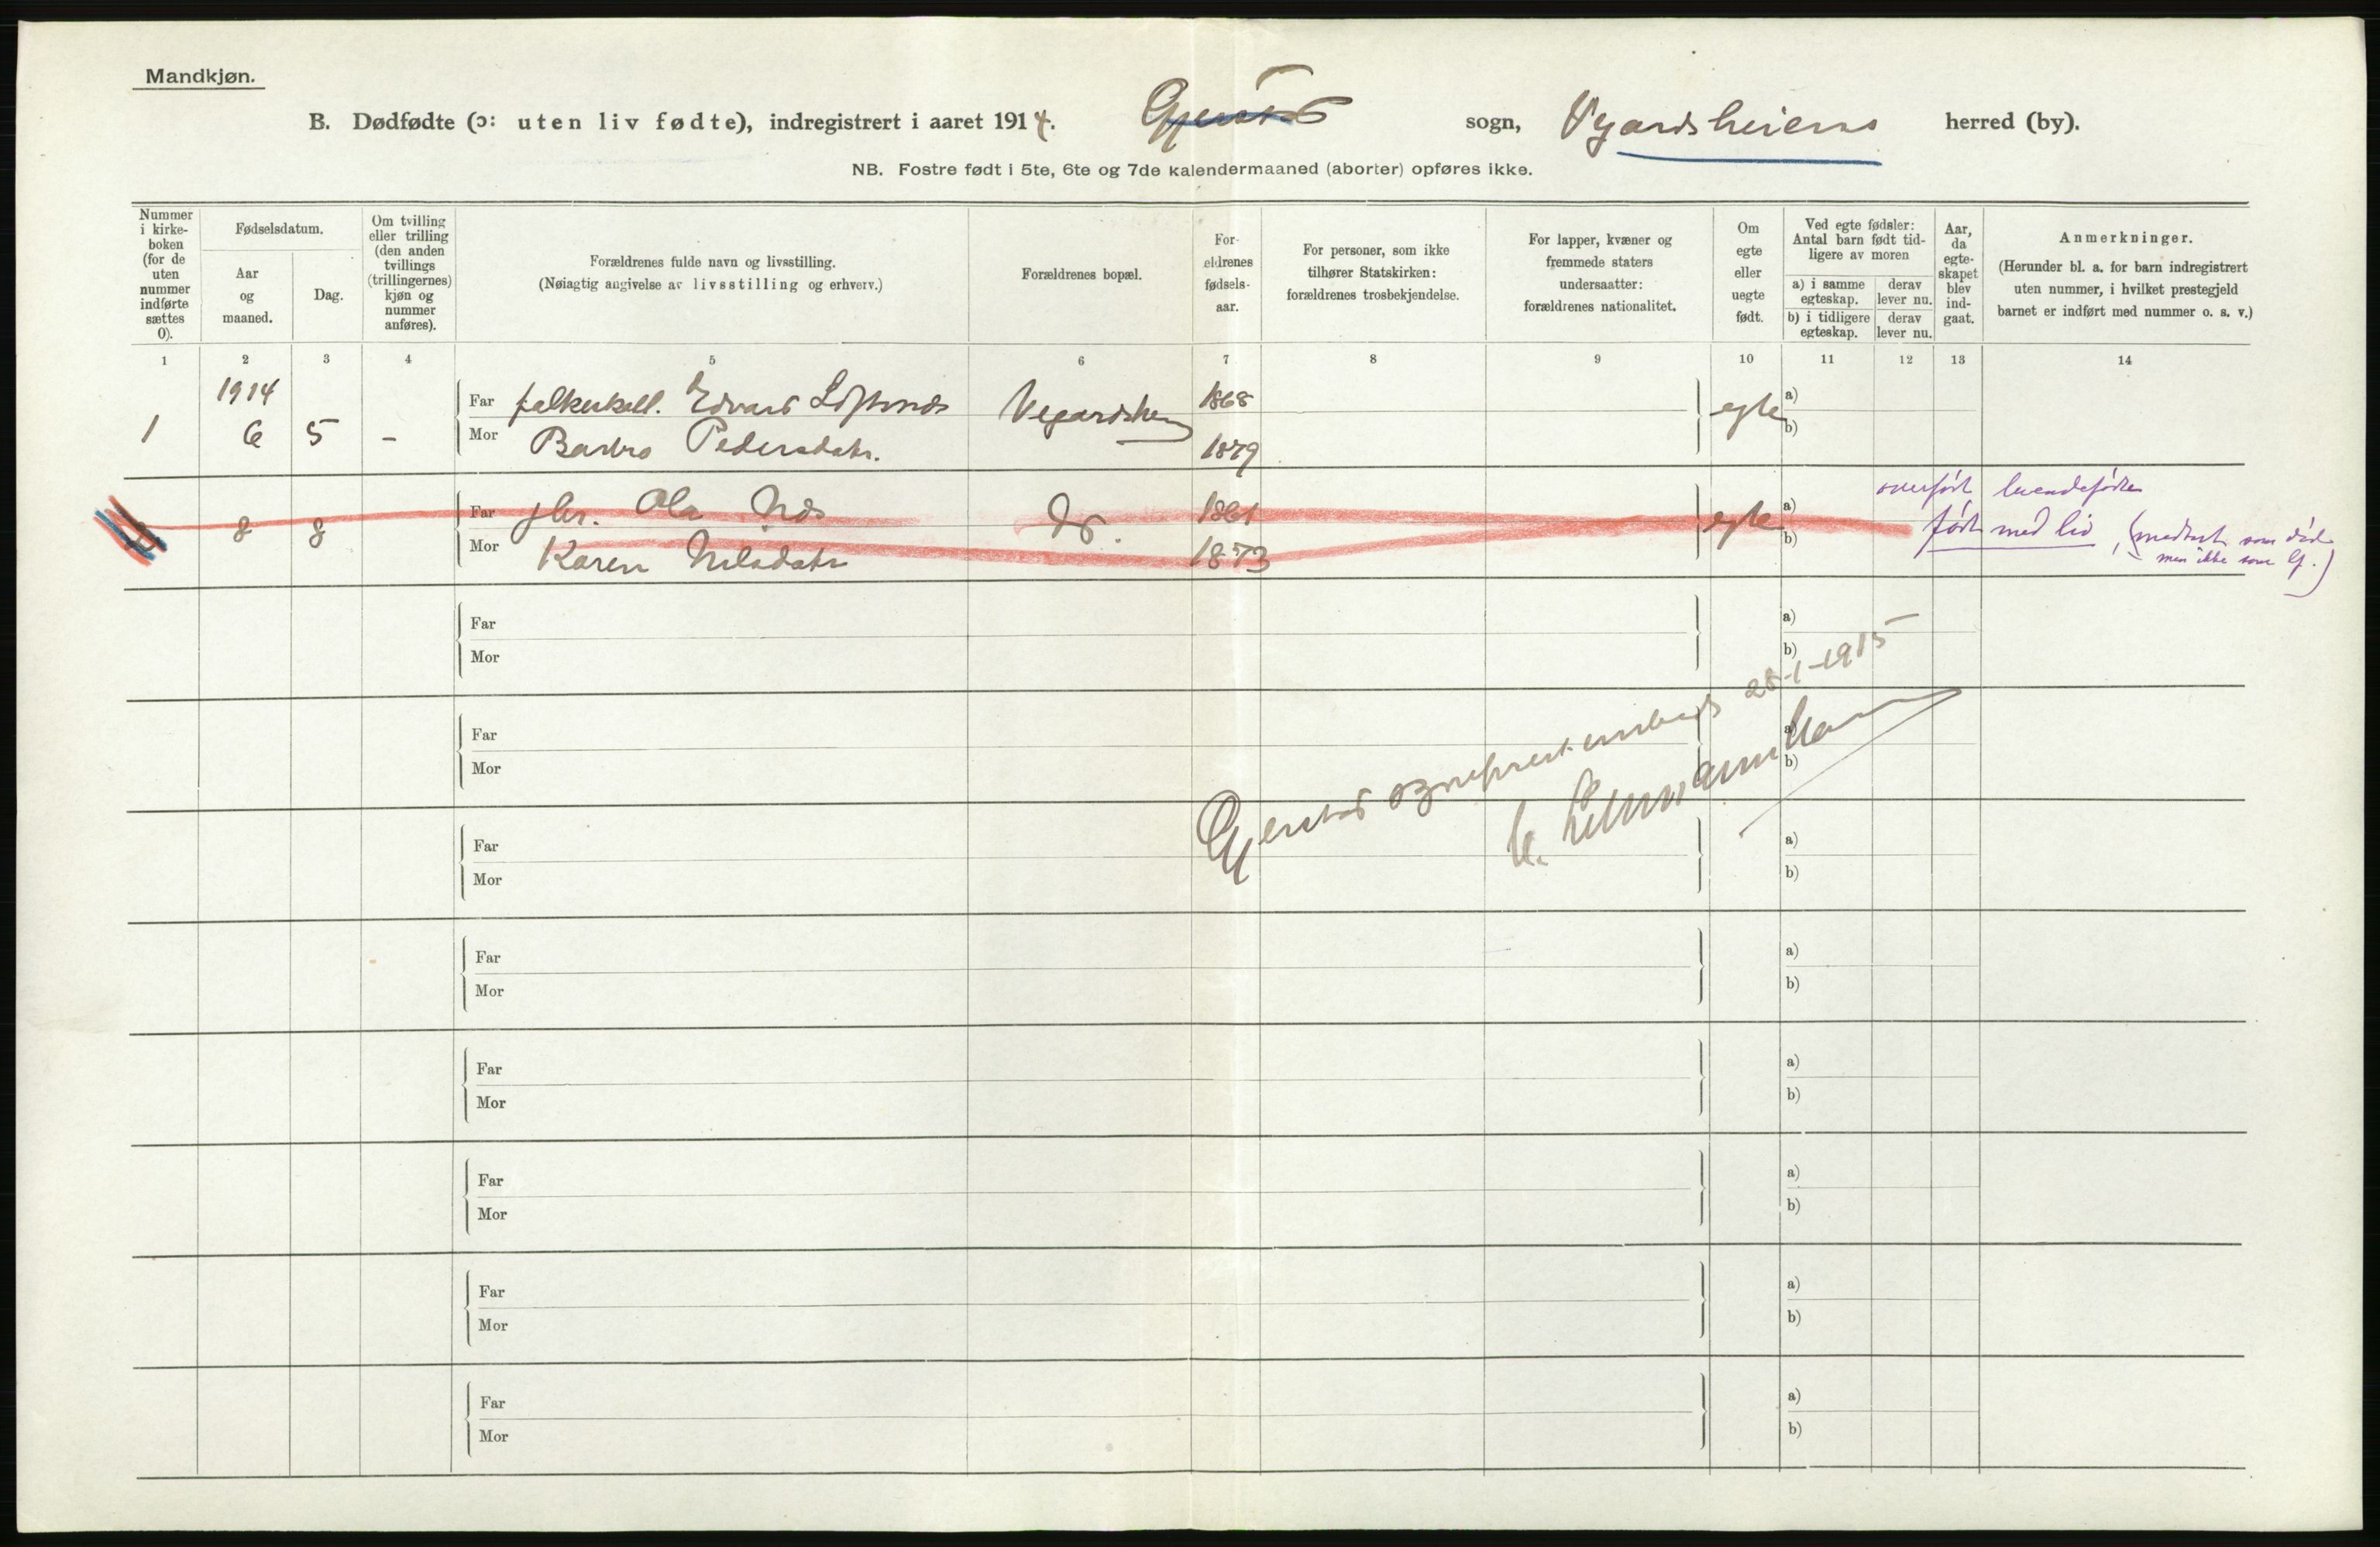 Mandkjøn.
B. Dødfødte (ɔ: uten liv fødte), indregistrert i aaret 1914. Gjerstad sogn, Vegardsheiens herred (by).
NB. Fostre født i 5te, 6te og 7de kalendermaaned (aborter) opføres ikke.
Nummer i kirke-boken (for de uten nummer indførte sættes 0).
Fødselsdatum.
Aar og maaned.
Dag.
Om tvilling eller trilling (den anden tvillings (trillingernes) kjøn og nummer anføres).
Forældrenes fulde navn og livsstilling.
(Nøiagtig angivelse av livsstilling og erhverv.)
Forældrenes bopæl.
For-ældrenes fødsels-aar.
For personer, som ikke tilhører Statskirken: forældrenes trosbekjendelse.
For lapper, kvæner og fremmede staters undersaatter: forældrenes nationalitet.
Om egte eller uegte født.
Ved egte fødsler: Antal barn født tid-ligere av moren
a) i samme egteskap. derav lever nu.
b) i tidligere egteskap. derav lever nu.
Aar, da egte-skapet blev ind-gaat.
Anmerkninger.
(Herunder bl. a. for barn indregistrert uten nummer, i hvilket prestegjeld barnet er indført med nummer o. s. v.)
1 2 3 4 5 6 7 8 9 10 11 12 13 14
1914
Far Edvard 1868 a)
1 6 5 – Vegardshei egte
Mor Barbro Pedersdatr. 1879 b)
overført levendefødte
Far gbr. Ola Næs 1861 a)
2 8 8 Do. egte født med liv, (medtat som død
Mor Karen Nilsdatr 1873 b) men ikke som lf.)
Far a)
Mor b)
Far a)
Mor b)
Gjerstad sogneprestembede 28-1-1915
Far a)
Mor b)
Far a)
Mor b)
Far a)
Mor b)
Far a)
Mor b)
Far a)
Mor b)
Far a)
Mor b)